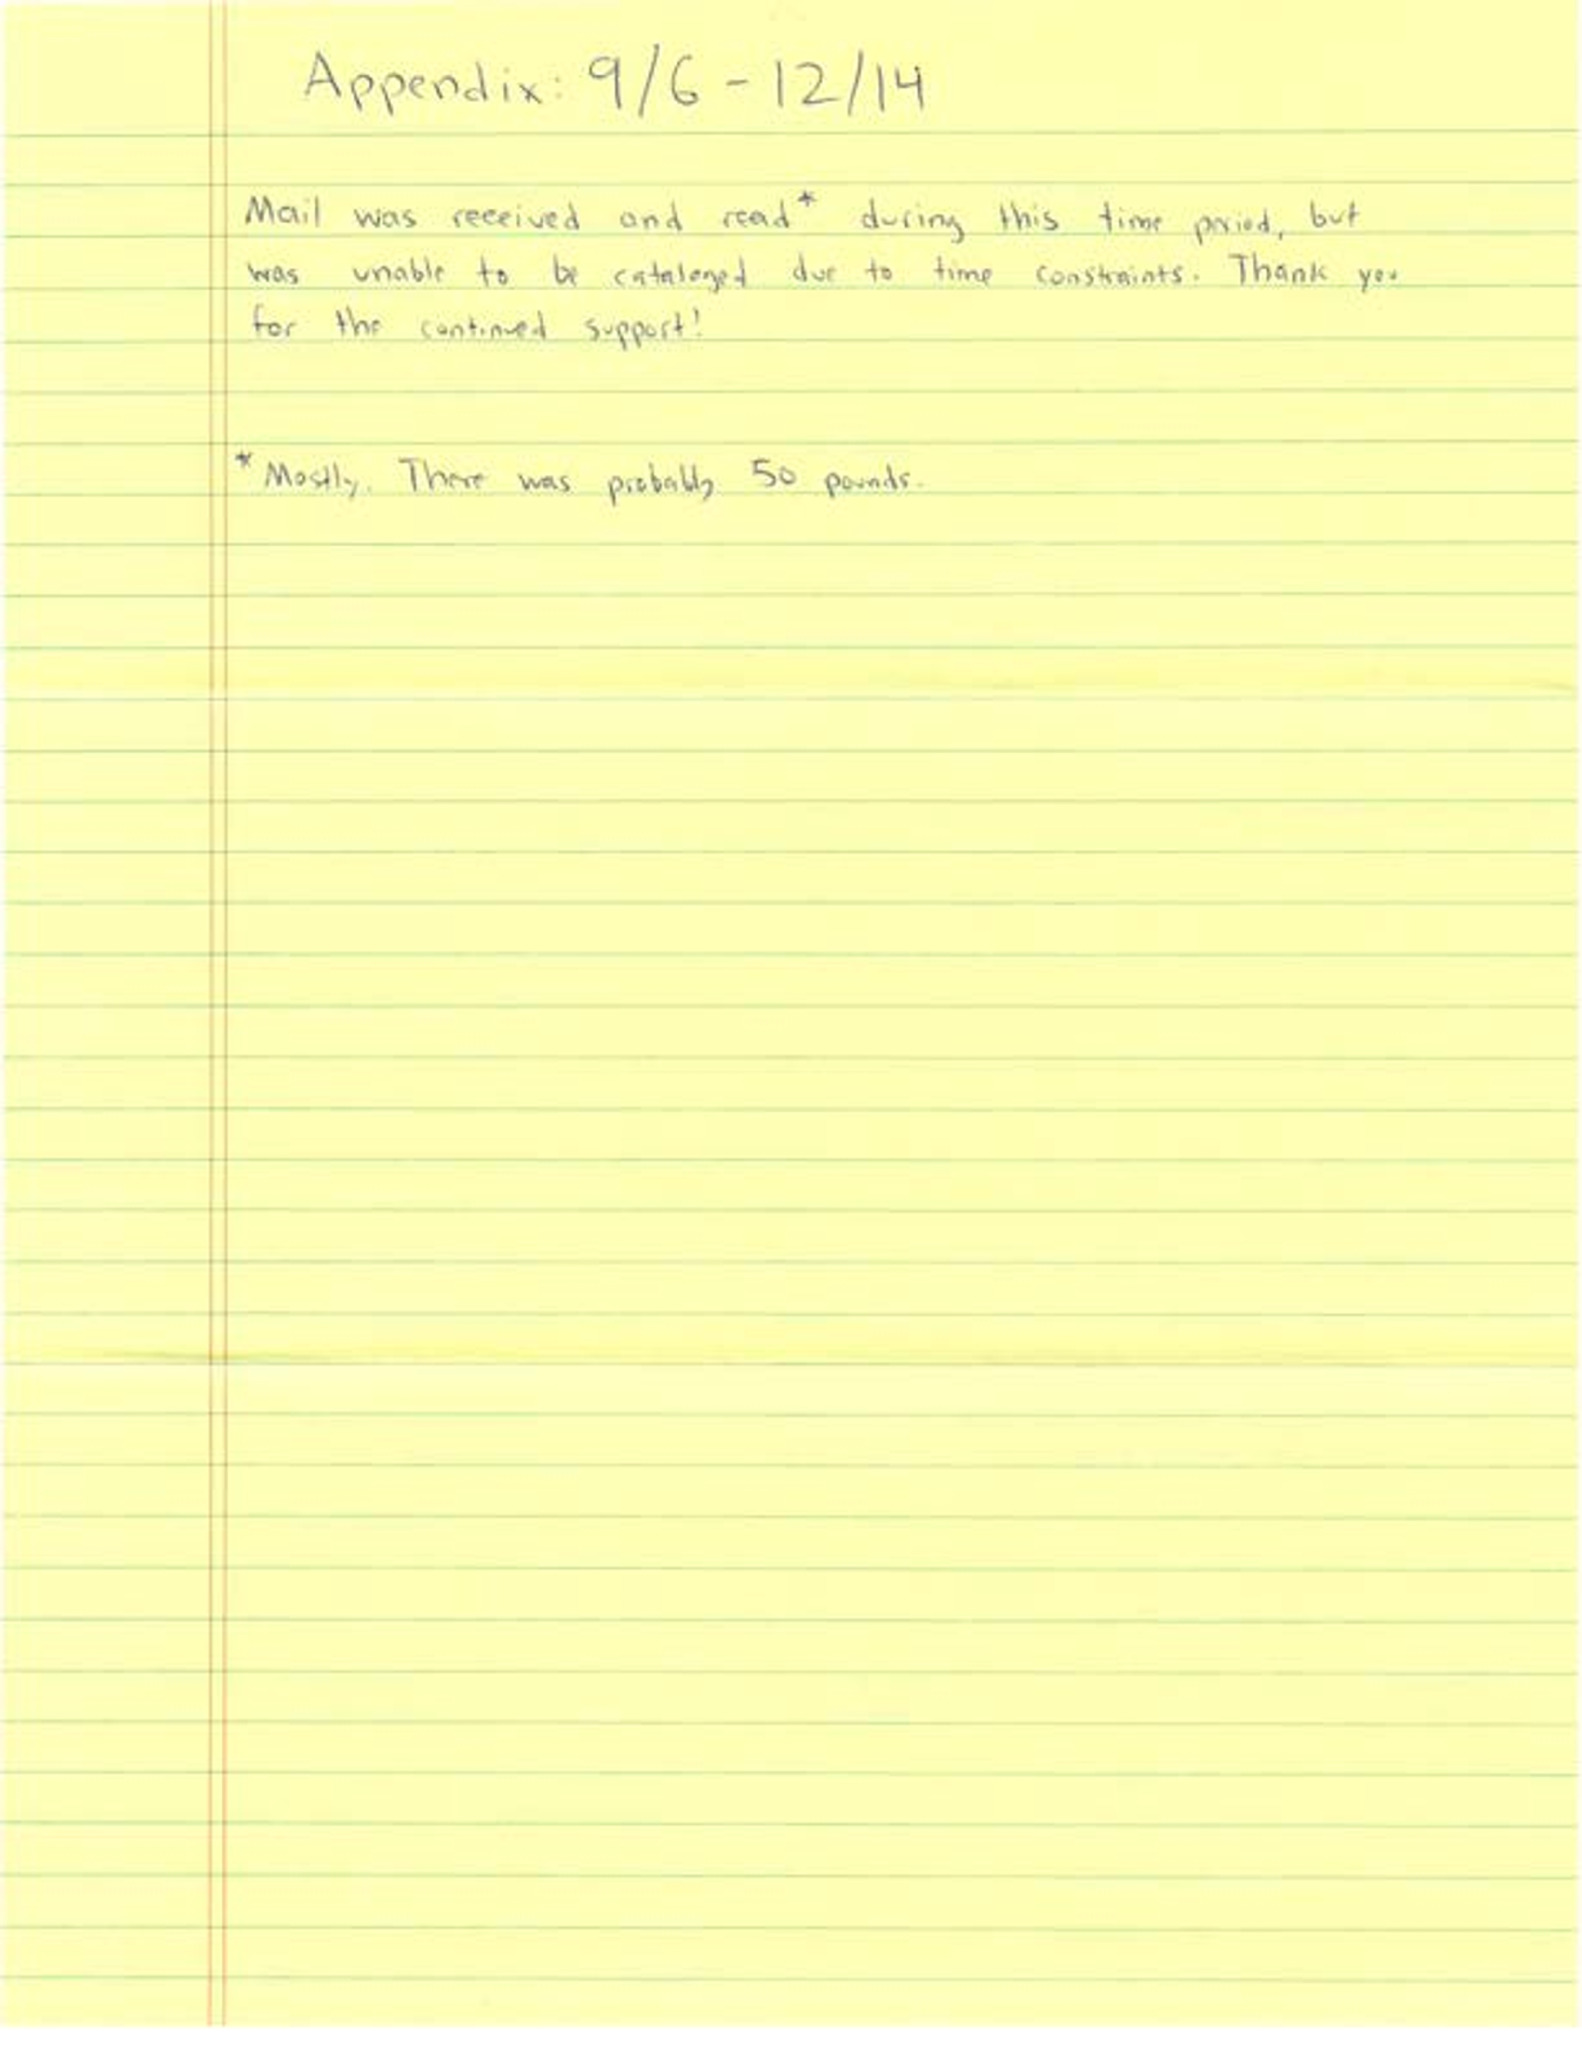 Appendix: 9/6 - 12/14
Mail was received and read* during this time period, but
was unable to be cataloged due to time constraints. Thank you
for the continued support!
*Mostly. There was probably 50 pounds.